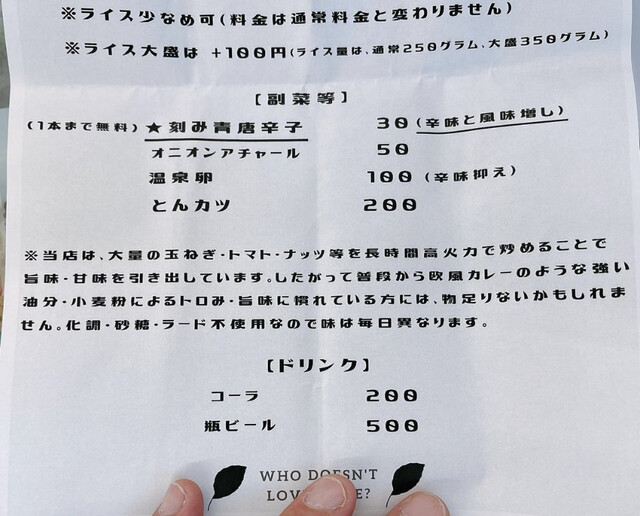 ※ライス少なめ可(料金は通常料金と変わりません)
※ライス大盛は +100円(ライス量は、通常250グラム、大盛350グラム)
【副菜等】
(1本まで無料)★刻み青唐辛子 30(辛味と風味増し)
オニオンアチャール 50
温泉卵 100(辛味抑え)
とんカツ 200
※当店は、大量の玉ねぎ・トマト・ナッツ等を長時間高火力で炒めることで
旨味・甘味を引き出しています。したがって普段から欧風カレーのような強い
油分・小麦粉によるトロみ・旨味に慣れている方には、物足りないかもしれま
せん。化調・砂糖・ラード不使用なので味は毎日異なります。
【ドリンク】
コーラ 200
瓶ビール 500
WHO DOESN'T